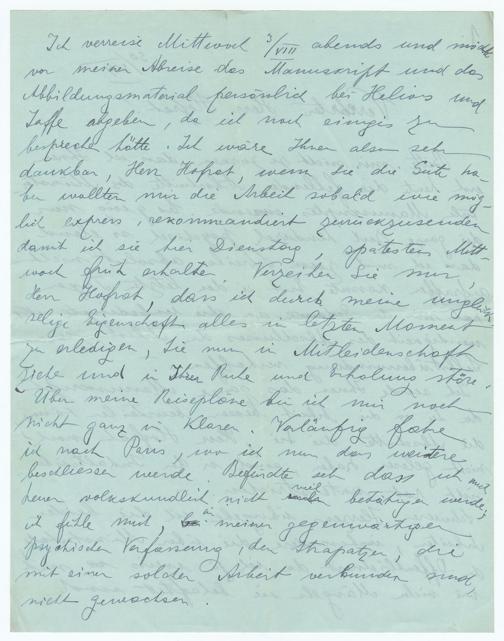 Ich verreise Mittwoch 3/VIII abends und möchte
vor meiner Abreise das Manuskript und das
Abbildungsmaterial persönlich bei Helios und
Jaffe abgeben, da ich noch einiges zu
besprechen hätte. Ich wäre Ihnen also sehr
dankbar, Herr Hofrat, wenn Sie die Güte ha-
ben wollten mir die Arbeit sobald wie mög-
lich express, rekommandiert zurückzusenden
damit ich sie hier Dienstag, spätestens Mitt-
woch früh erhalte. Verzeihen Sie mir,
Herr Hofrat, dass ich durch meine unglück-
selige Eigenschaft alles in letzten Moment
zu erledigen, Sie nun in Mitleidenschaft
ziehe und in Ihrer Ruhe und Erholung störe.
Über meine Reisepläne bin ich mir noch
nicht ganz im Klaren. Vorläufig fahre
ich nach Paris, wo ich nun das weitere
beschliessen werde. Befürchte ich dass ich mich
heuer volkskundlich nicht viel betätigen werde;
ich fühle mich, in meiner gegenwärtigen
psychischen Verfassung, den Strapatzen, die
mit einer solchen Arbeit verbunden sind
nicht gewachsen.